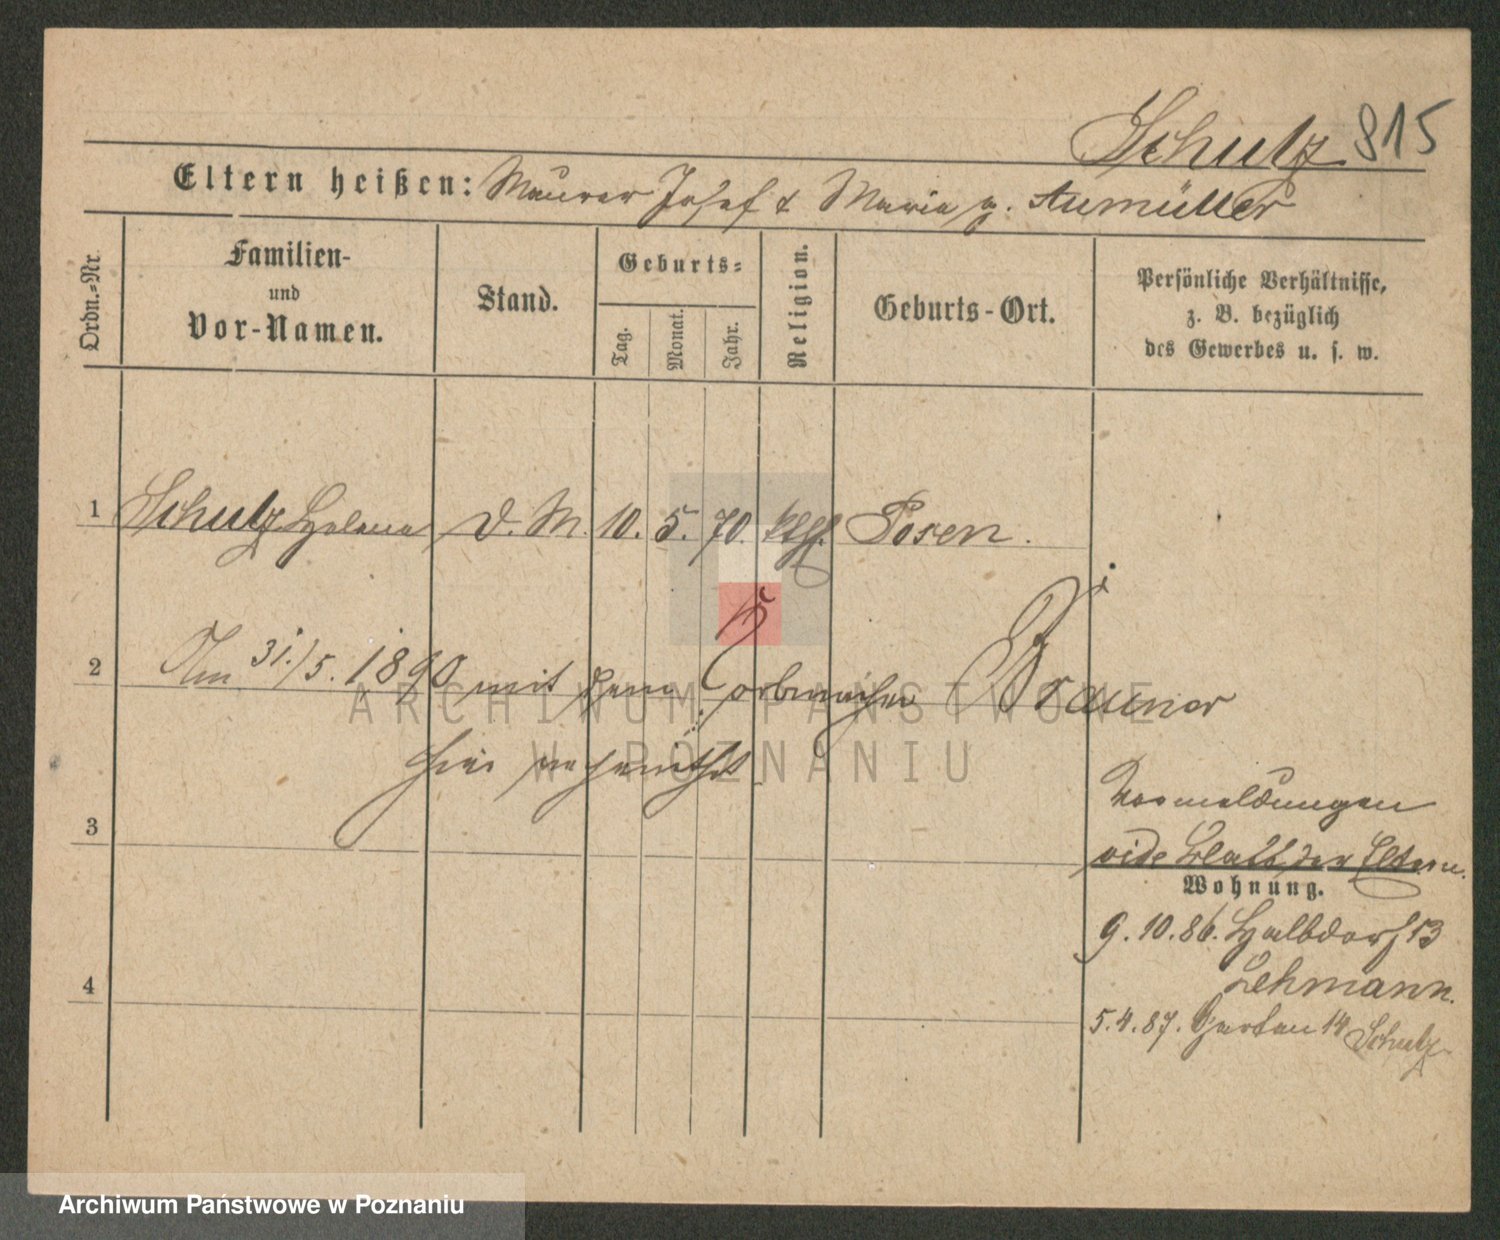 Schulz 815
Eltern heißen: Maurer Josef & Maria g. Aumüller
Ordn.=Nr.
Familien-
und
Vor-Namen.
Stand.
Geburts=
Tag.
Monat.
Jahr.
Religion.
Geburts-Ort.
Persönliche Verhältnisse,
z. B. bezüglich
des Gewerbes u. s. w.
1 Schulz Helena D. M. 10. 5. 70. kth. Posen.
2 Am 31./5. 1890 mit dem Korbmacher Brauner
hier verheirathet
3
Vormeldungen
vide Blatt der Eltern.
Wohnung.
9. 10. 86. Halbdorf 13
Lehmann.
4
5. 4. 87. Garten 14 Schulz
ARCHIWUM PAŃSTWOWE
W POZNANIU
Archiwum Państwowe w Poznaniu